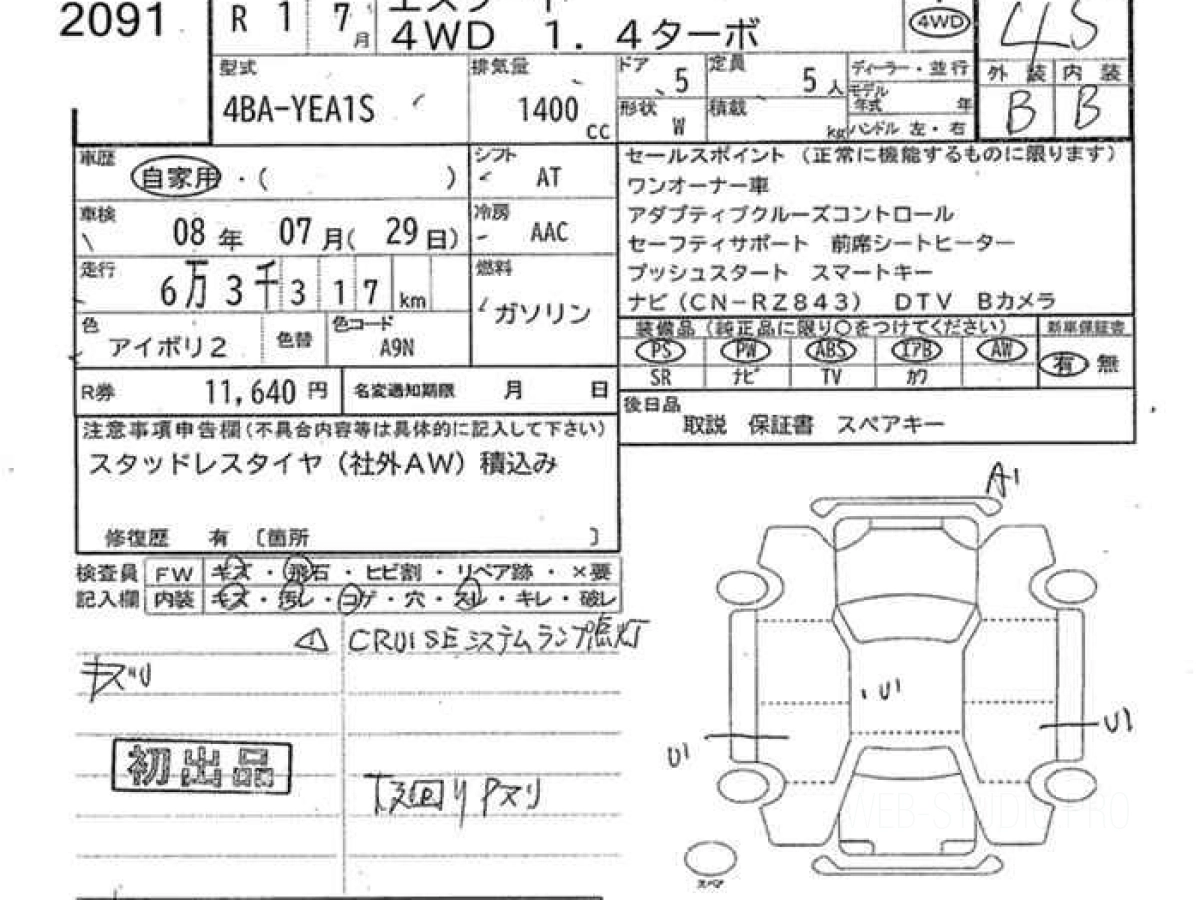 2091
R 1 7月
エスクード
4WD 1.4ターボ
4WD
45
型式
4BA-YEA1S
排気量
1400 cc
ドア 5
定員 5人
形状 W
積載 kg
ディーラー・並行
モデル年式 年
ハンドル 左・右
外装 内装
B B
車歴
自家用・( )
シフト AT
車検
08年 07月( 29日)
冷房 AAC
走行
6万3千317km
燃料 ガソリン
色 アイボリ2
色替
色コード A9N
R券 11,640円
名変通知期限 月 日
セールスポイント(正常に機能するものに限ります)
ワンオーナー車
アダプティブクルーズコントロール
セーフティサポート 前席シートヒーター
プッシュスタート スマートキー
ナビ(CN-RZ843) DTV Bカメラ
装備品(純正品に限り○をつけてください)
新車保証書
PS PW ABS エアB AW
有 無
SR ナビ TV カワ
後日品
取説 保証書 スペアキー
注意事項申告欄(不具合内容等は具体的に記入して下さい)
スタッドレスタイヤ(社外AW)積込み
修復歴 有 〔箇所 〕
検査員 FW キズ・飛石・ヒビ割・リペア跡・×要
記入欄 内装 キズ・汚レ・コゲ・穴・スレ・キレ・破レ
⚠ CRUISEシステムランプ点灯
キズ
初出品
下回りサスリ
A1
U1
U1
U1
スペア
WEB-STUDIO.PRO